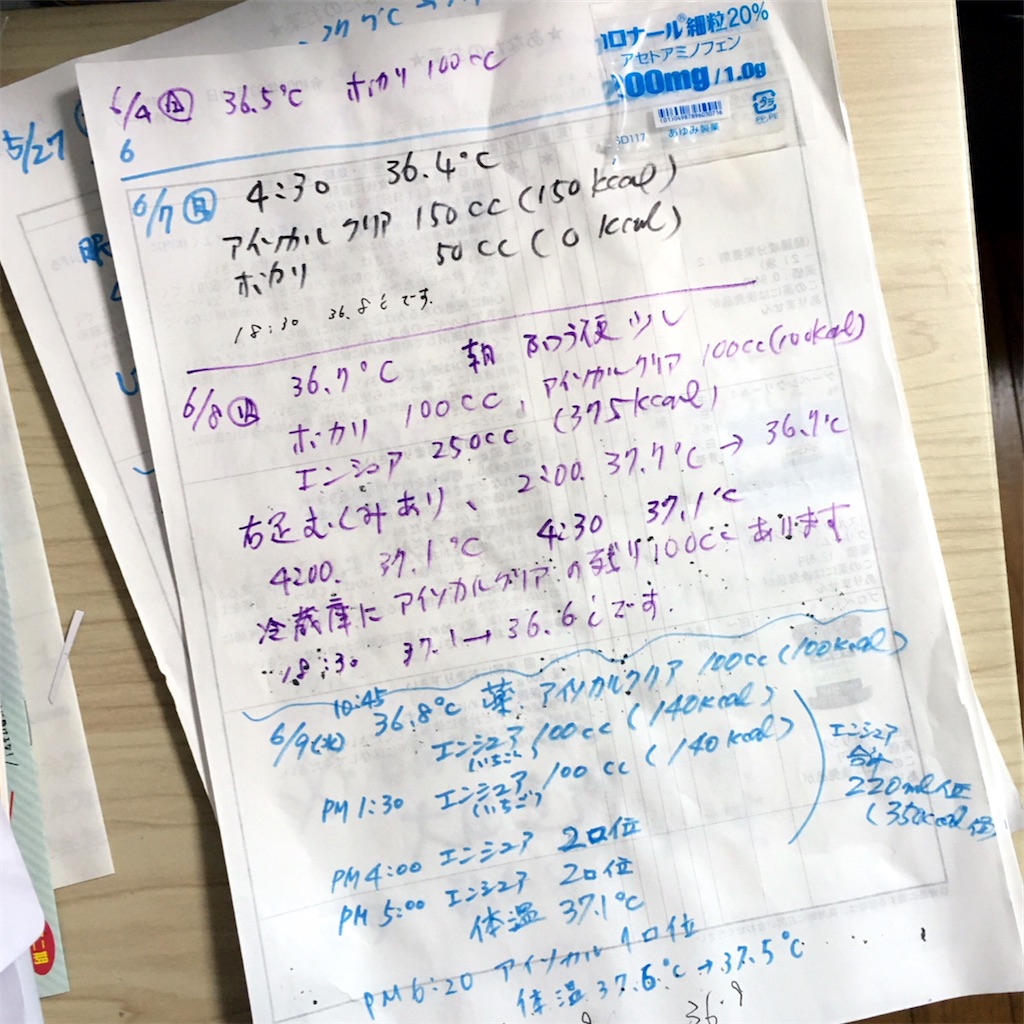 37.7℃
5/27
コロナール®細粒20%
アセトアミノフェン
200mg/1.0g
あゆみ製薬
SD117
PP,PE
36.5℃ ポカリ 100cc
6
6/7(日) 4:30 36.4℃
アイソカルクリア 150cc(150kcal)
ポカリ 50cc(0 kcal)
18:30 36.8℃です.
6/8 36.7℃ 朝 ふつう便 少し
ポカリ 100cc、アイソカルクリア 100cc(100kcal)
エンシュア 250cc (375kcal)
右足むくみあり、 2:00. 37.7℃→36.7℃
4:00. 37.1℃ 4:30 37.1℃
冷蔵庫にアイソカルクリアの残り100ccあります
18:30 37.1→36.6℃です.
10:45
6/9(火) 36.8℃ 薬、アイソカルクリア 100cc(100kcal)
エンシュア 100cc(140kcal)
(いちご)
PM1:30 エンシュア 100cc(140kcal)
(いちご)
エンシュア
合計
220ml位
(350kcal位)
PM4:00 エンシュア 2口位
PM5:00 エンシュア 2口位
体温 37.1℃
PM6:20 アイソカル 1口位
体温 37.6℃→37.5℃
36.9